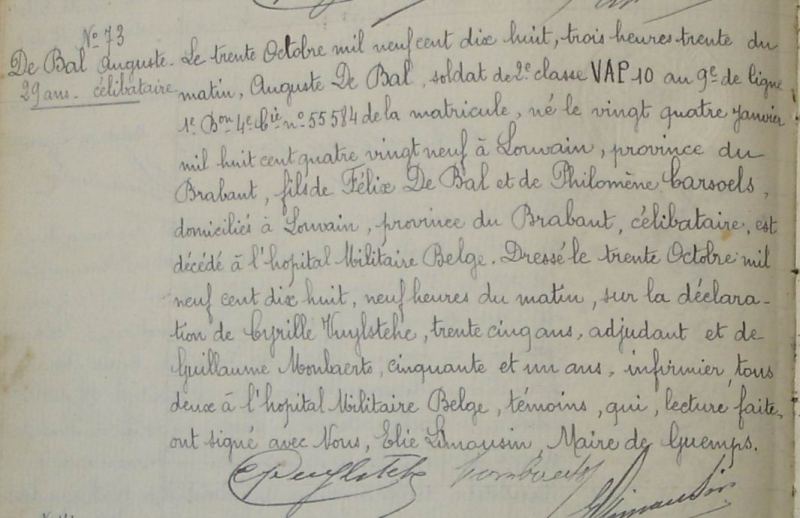 N° 73
De Bal Auguste
29 ans. célibataire
Le trente Octobre mil neuf cent dix huit, trois heures trente du
matin, Auguste De Bal, soldat de 2e classe VAP 10 au 9e de ligne
1e Bon 4e Cie n° 55584 de la matricule, né le vingt quatre janvier
mil huit cent quatre vingt neuf à Louvain, province du
Brabant, fils de Félix De Bal et de Philomène Carsoels,
domiciliés à Louvain, province du Brabant, célibataire, est
décédé à l'hopital Militaire Belge. Dressé le trente Octobre mil
neuf cent dix huit, neuf heures du matin, sur la déclara-
tion de Cyrille Vuylsteke, trente cinq ans, adjudant et de
Guillaume Monbaerts, cinquante et un ans, infirmier, tous
deux à l'hopital Militaire Belge, témoins, qui, lecture faite,
ont signé avec Nous, Elie Limousin, Maire de Guemps.